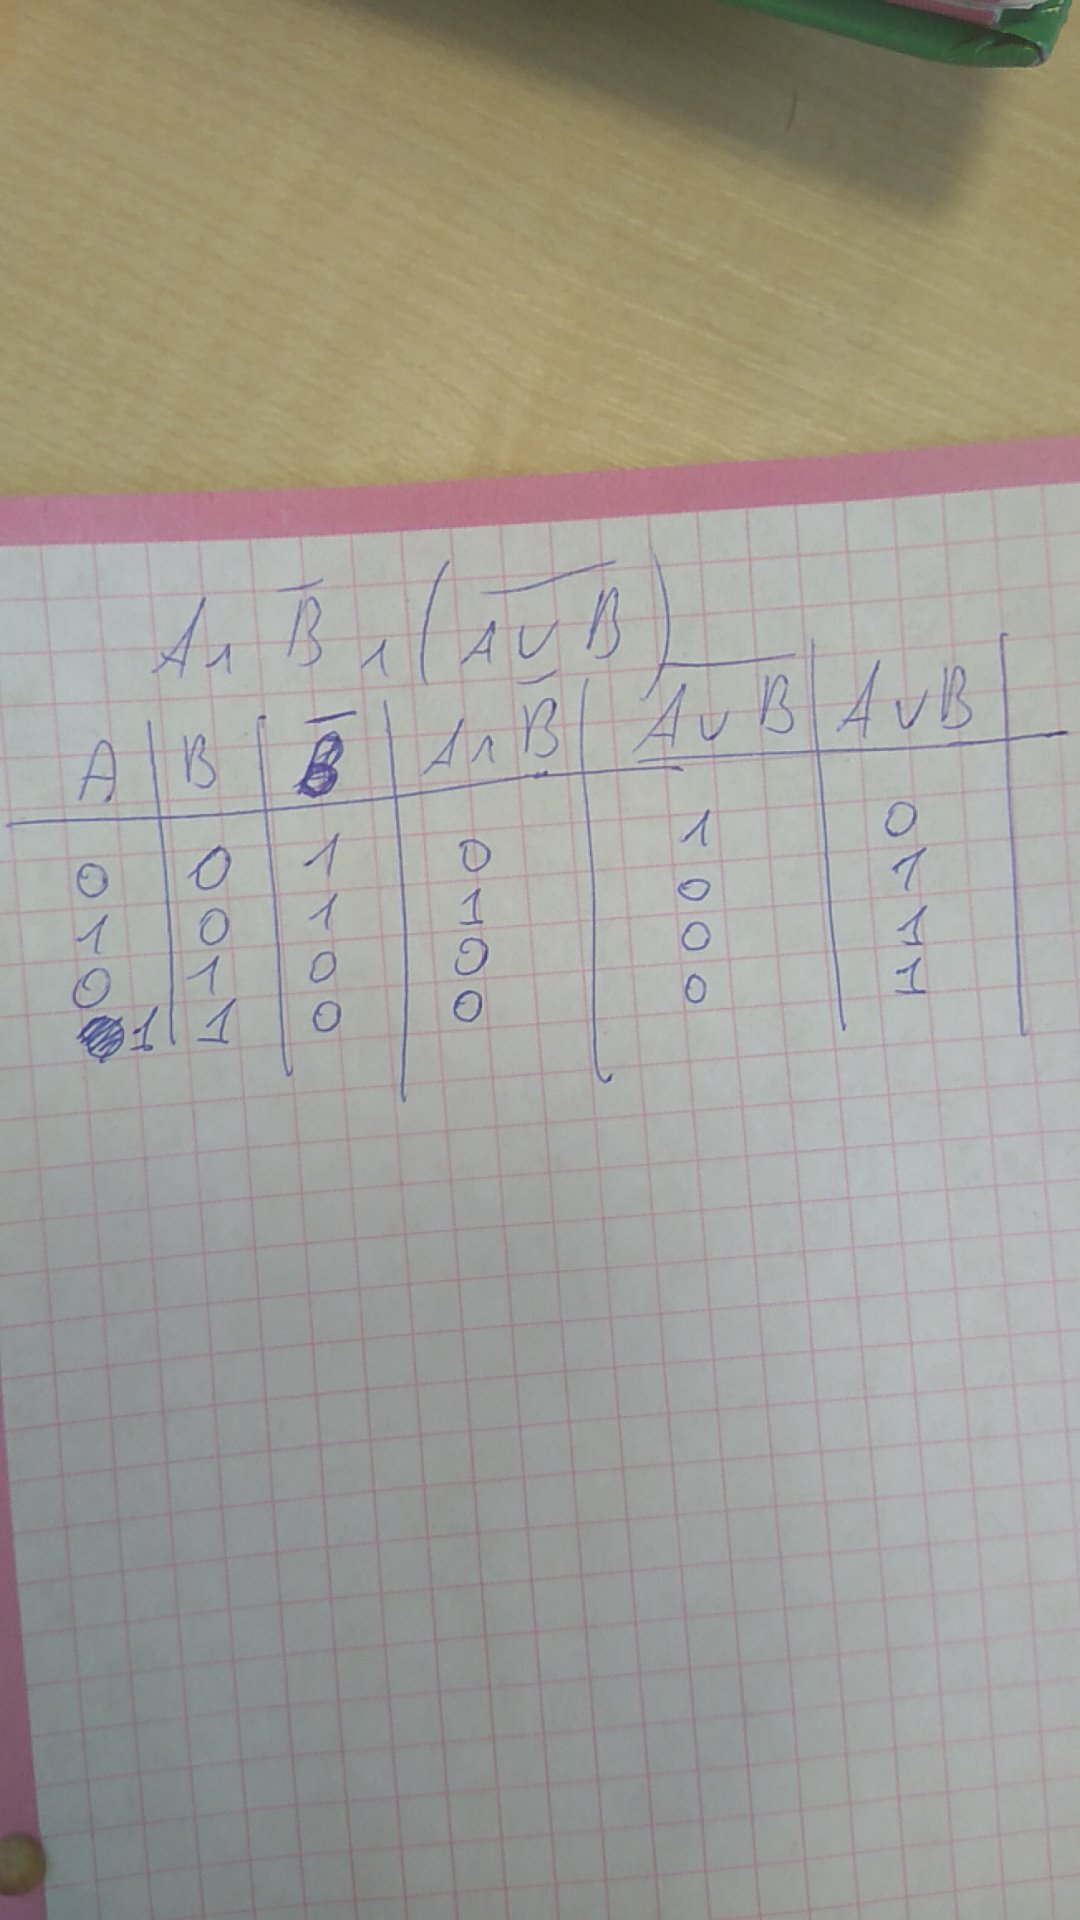 A ∧ B̅ ∧ (A̅ ̅∨̅ ̅B̅)
A | B | B̅ | A ∧ B̅ | A̅ ̅∨̅ ̅B̅ | A ∨ B |
0 | 0 | 1 | 0 | 1 | 0
1 | 0 | 1 | 1 | 0 | 1
0 | 1 | 0 | 0 | 0 | 1
1 | 1 | 0 | 0 | 0 | 1